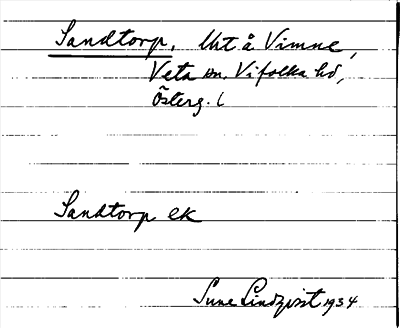 Sandtorp. Utå Vimne,
Veta sn. Vifolka hd,
Österg. l
Sandtorp ek
Sune Lindqvist 1934